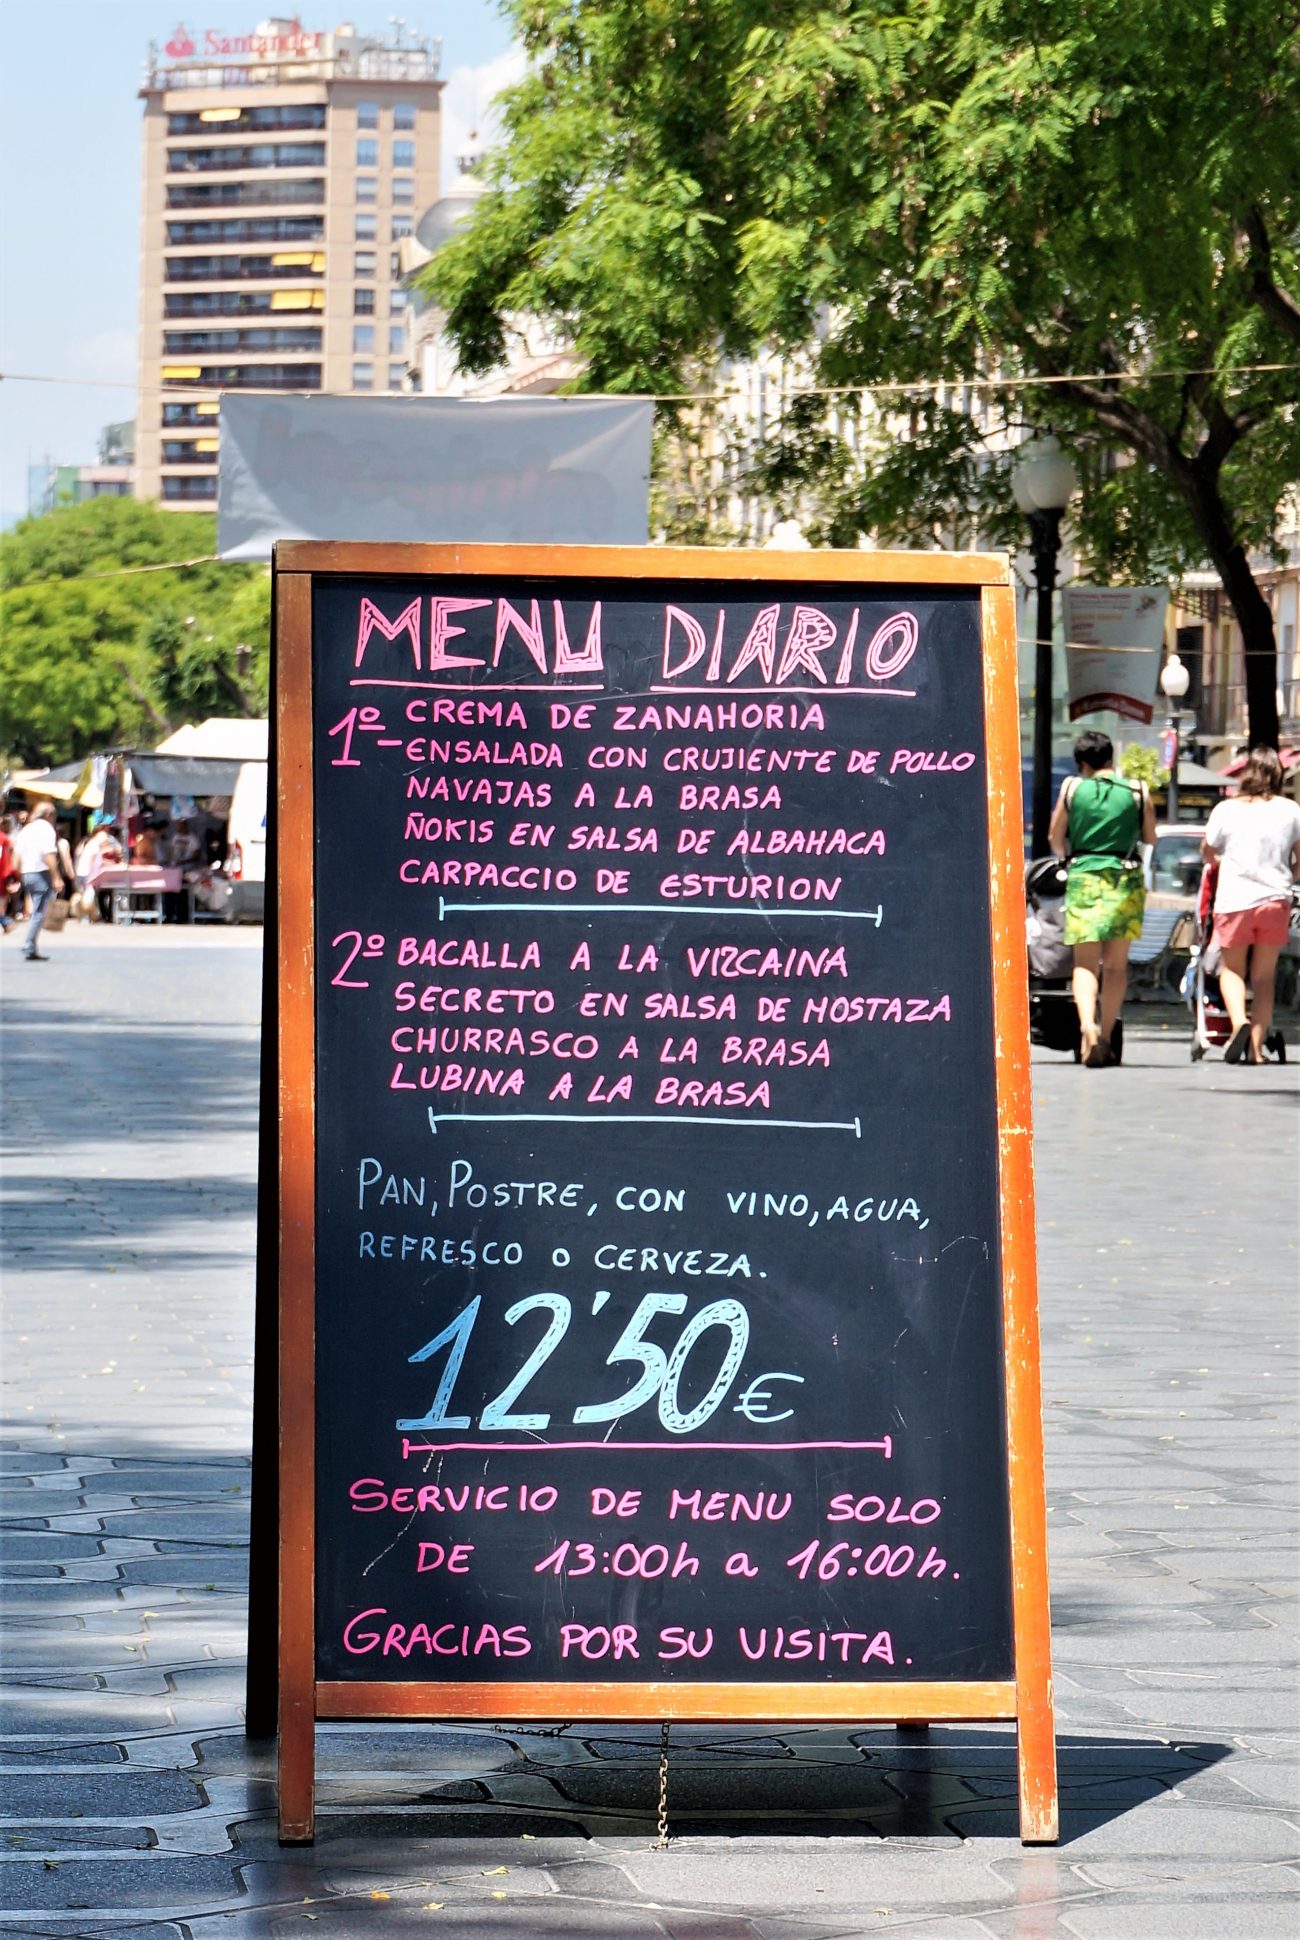 Santander
MENU DIARIO
1º CREMA DE ZANAHORIA
ENSALADA CON CRUJIENTE DE POLLO
NAVAJAS A LA BRASA
ÑOKIS EN SALSA DE ALBAHACA
CARPACCIO DE ESTURION
2º BACALLA A LA VIZCAINA
SECRETO EN SALSA DE MOSTAZA
CHURRASCO A LA BRASA
LUBINA A LA BRASA
PAN, POSTRE, CON VINO, AGUA,
REFRESCO O CERVEZA.
12'50€
SERVICIO DE MENU SOLO
DE 13:00h a 16:00h.
GRACIAS POR SU VISITA.